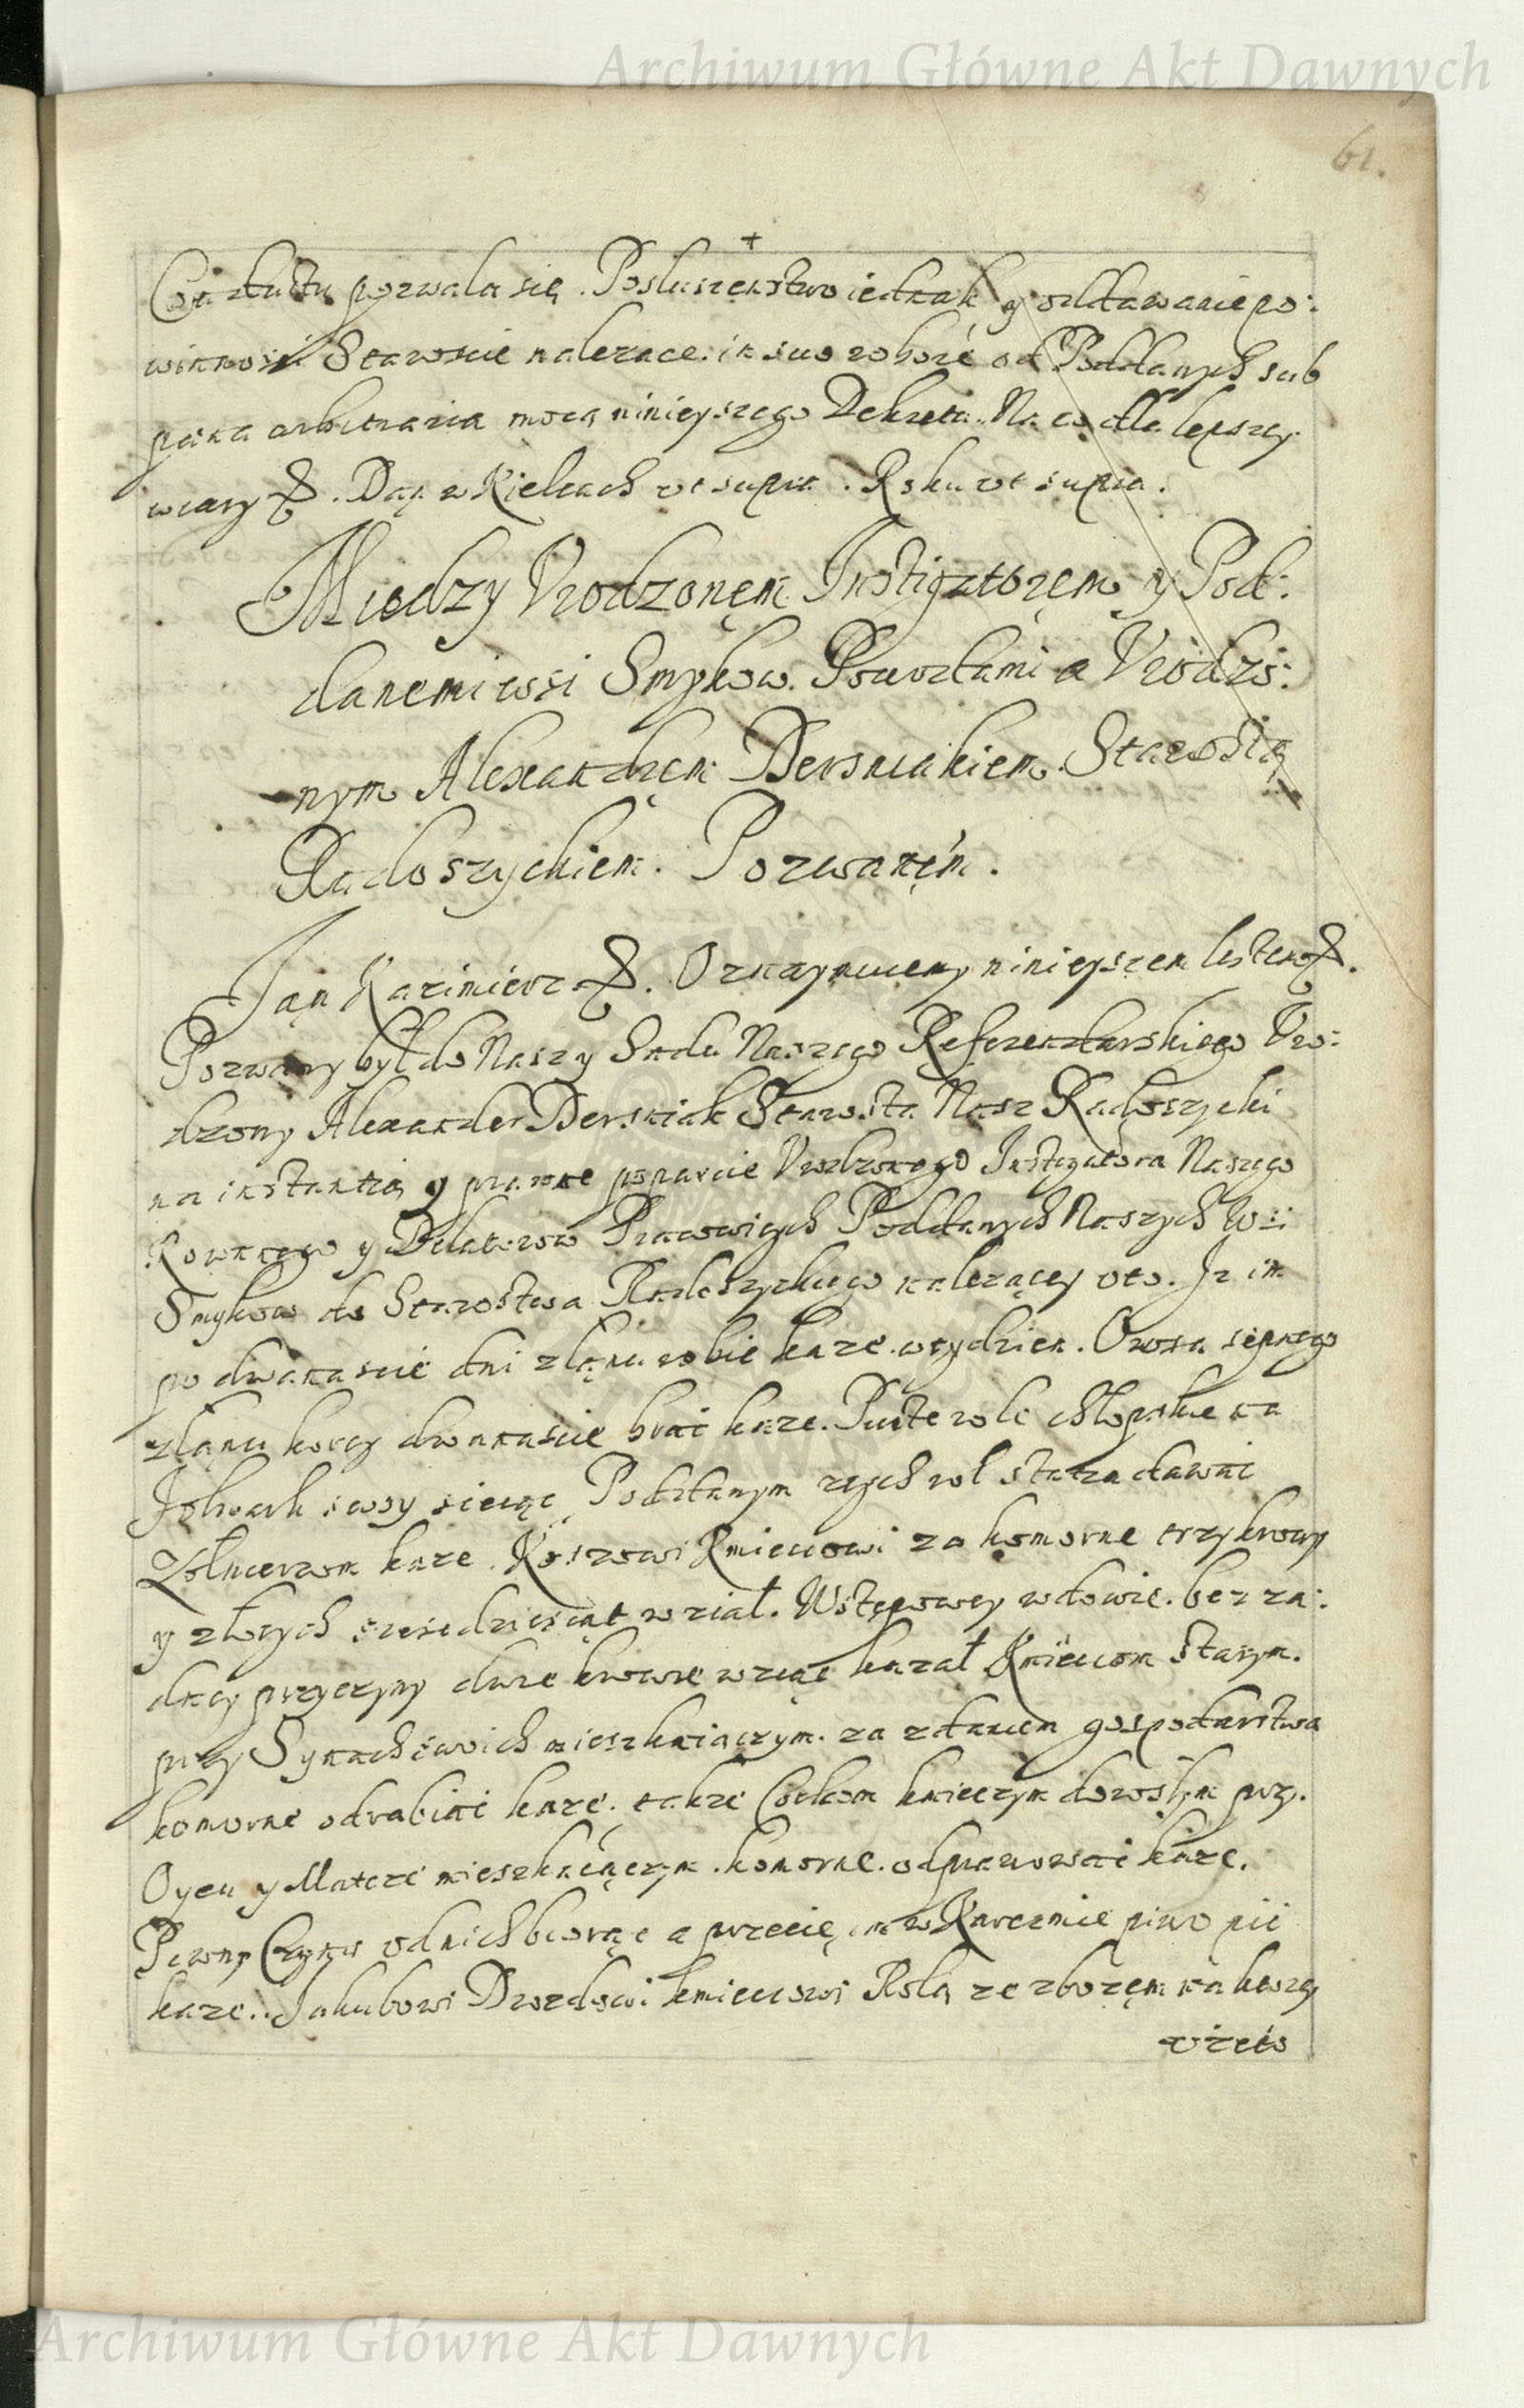 Archiwum Główne Akt Dawnych
61.
Conductu pozwala się. Posłuszenstwo iednak y oddawanie po:
winnosci Staroscie nalezace in suo robore od Poddanych sub
pæna arbitraria mocą ninieyszego Dekretu. Na co dla lepszey
wiary &. Dan w Kielcach ut supra. Roku ut supra.
Miedzy Vrodzonęm Instigatoręm y Pod:
danemi wsi Smykow Powodami a Vrodzo:
nym Alexandręm Dersniakiem Starostą
Radoszyckiem. Pozwanęm.
Jan Kazimierz &. Oznaymuiemy ninieyszem listem &.
Pozwany był do Nas y Sądu Naszego Referendarskiego Vro:
dzony Alexander Dersniak Starosta Nasz Radoszycki
na instantią y prawne poparcie Vrodzonego Instigatora Naszego
Koronnego y Delatorow Pracowitych Poddanych Naszych Wsi
Smykow do Starostwa Radoszyckiego nalezącey oto. Jz im
po dwanascie dni z łanu robic kaze w tydzien. Owsa sepnego
z łanu korcy dwanascie brac kaze. Puste role chłopskie na
Folwark swoy sieiąc Poddanym z tych rol stacia dawac
Zołnierzom kaze. Koszowi Kmieciowi za komorne trzy krowy
y złotych szescdziesiąt wziął. Wstępowey wdowie bez za:
dney przyczyny dwie krowie wziąc kazał Kmieciom starym
przy Synach swoich mieszkaiączym za zdaniem gospodarstwa
komorne odrabiac kaze, także Corkom kmieczym dorosłym przy
Oycu y Matce mieszkaiączym komorne odprawowac kaze.
Pewny Czynsz od nich biorąc a przecię im w Karczmie piwo pic
kaze. Jakubowi Drozdowi kmieciowi Rolą ze zbozęm na ktorey
Archiwum Główne Akt Dawnych